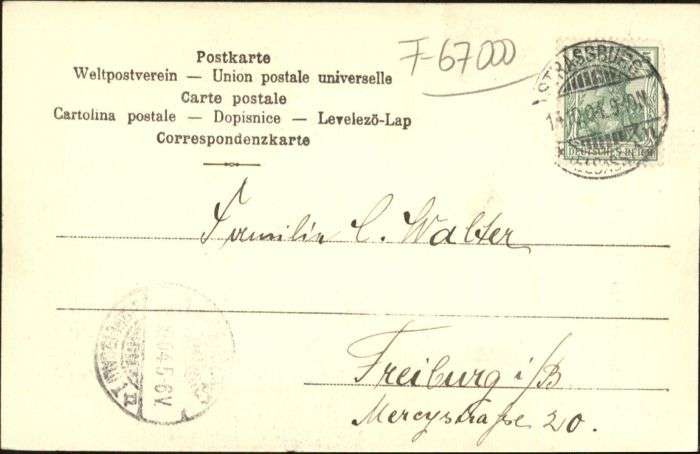 Postkarte
Weltpostverein — Union postale universelle
Carte postale
Cartolina postale — Dopisnice — Levelező-Lap
Correspondenzkarte
F-67000
STRASSBURG
DEUTSCHES REICH
Familie C. Walter
Freiburg i/B
Mercystraße 20.